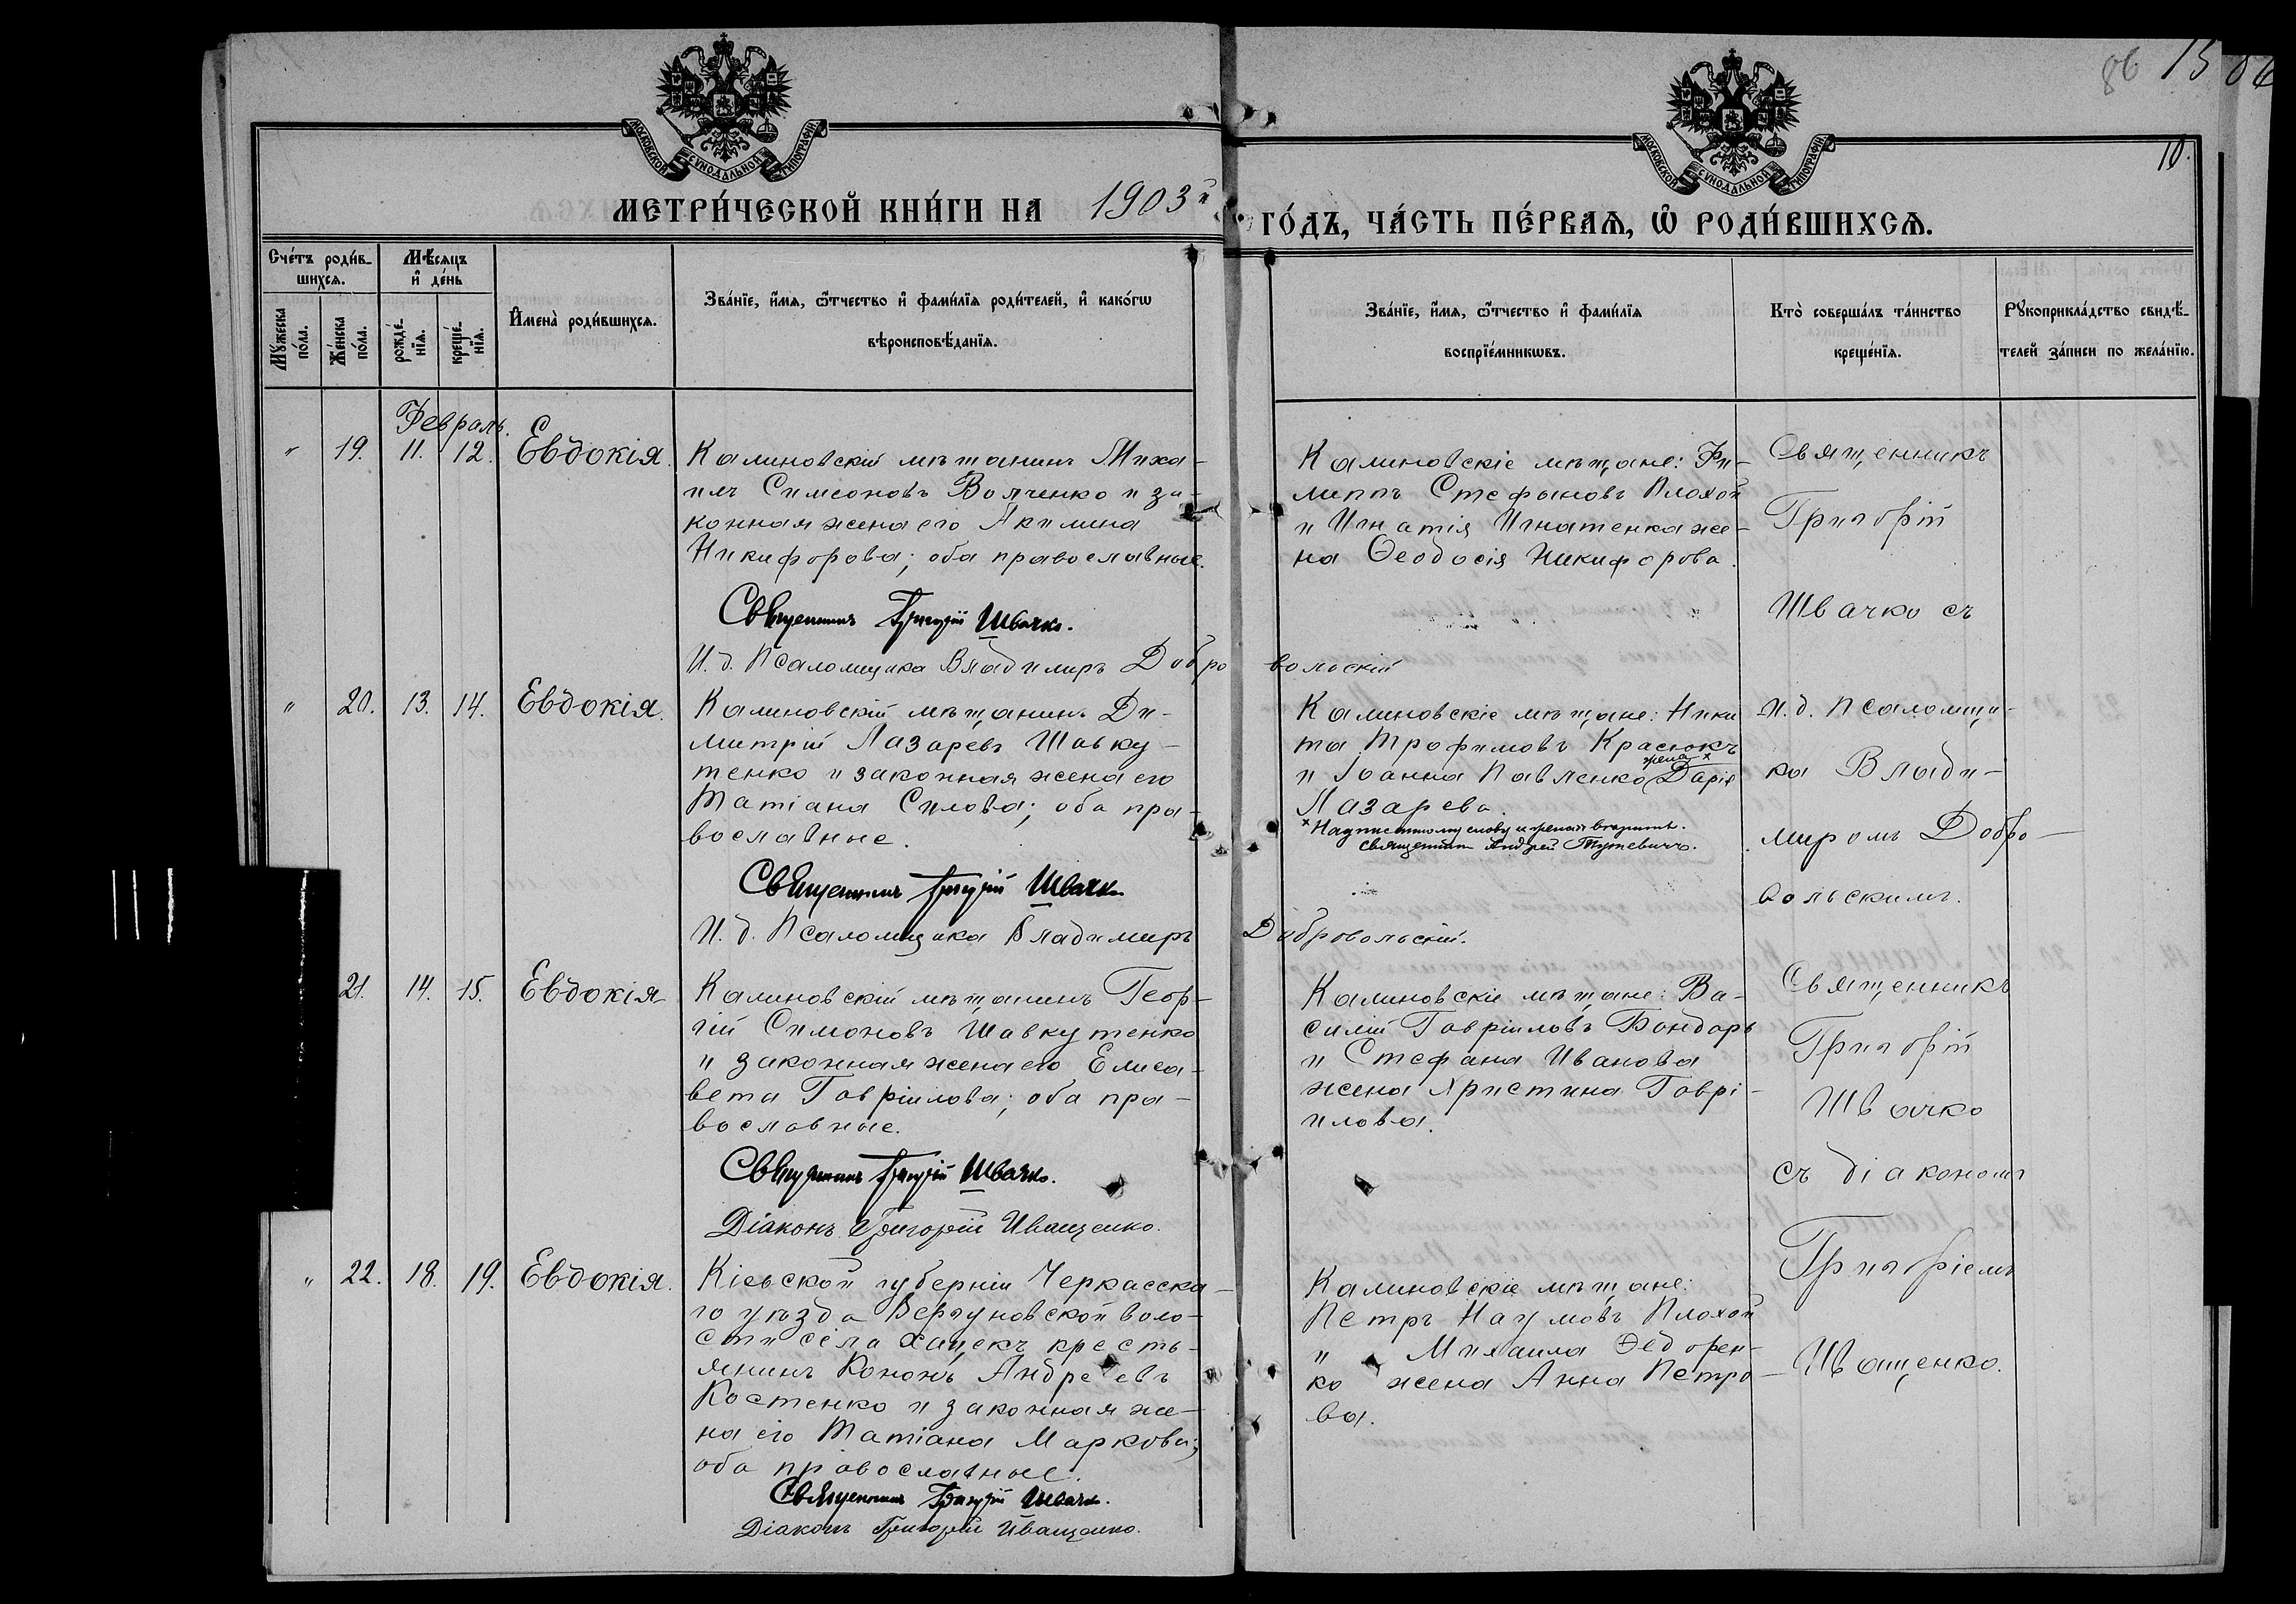 86 15 86
МОСКОВСКОЙ СѴНОДАЛЬНОЙ ТИПОГРАФІИ.
МОСКОВСКОЙ СѴНОДАЛЬНОЙ ТИПОГРАФІИ.
10.
МЕТРИ́ЧЕСКОЙ КНИ́ГИ НА 1903й
ГО́ДЪ, ЧА́СТЬ ПЕ́РВАѦ, Ѿ РОДИ́ВШИХСѦ.
Сче́тъ роди́в-
шихсѧ.
Мѣ́сяцъ
и҆ де́нь
Мꙋ́жеска
по́ла.
Же́нска
по́ла.
рожде́-
нїѧ.
креще́-
нїѧ.
И҆мена̀ роди́вшихсѧ.
Зва́нїе, и҆́мѧ, ѻ҆́тчество и҆ фами́лїѧ роди́телей, и҆ како́гѡ
вѣроисповѣ́данїѧ.
Зва́нїе, и҆́мѧ, ѻ҆́тчество и҆ фами́лїѧ
воспрїе́мникѡвъ.
Кто̀ соверша́лъ та́инство
креще́нїѧ.
Рꙋкоприкла́дство свидѣ́-
телей за́писи по жела́нїю.
Февраль.
" 19. 11. 12. Евдокія.
Калиновскій мѣщанинъ Миха-
илъ Симеоновъ Волченко и за-
конная жена его Акилина
Никифорова; оба православные.
Священникъ Григорій Швачко.
И. д. Псаломщика Владимиръ Добровольскій
Калиновскіе мѣщане: Фи-
липпъ Стефановъ Плохой
и Игнатія Игнатенка же-
на Ѳеодосія Никифорова.
Священникъ
Григорій
Швачко съ
" 20. 13. 14. Евдокія.
Калиновскій мѣщанинъ Ди-
митрій Лазаревъ Шавку-
тенко и законная жена его
Татіана Силова; оба пра-
вославные.
Священникъ Григорій Швачко
И. д. Псаломщика Владимиръ Добровольскій.
Калиновскіе мѣщане: Ники
та Трофимовъ Красюкъ
жена ×
и Іоанна Павленко Дарія
Лазарева.
× Надписанному слову и "жена" вѣрить.
Священникъ Андрей
И. д. Псаломщи-
ка Влади-
миромъ Добро-
вольскимъ.
21. 14. 15. Евдокія
Калиновскій мѣщанинъ Геор-
гій Симоновъ Шавкутенко
и законная жена его Елиса-
вета Гавріилова; оба пра-
вославные.
Священникъ Григорій Швачко.
Діаконъ Григорій Иващенко.
Калиновскіе мѣщане: Ва-
силій Гавріиловъ Бондарь
и Стефана Иванова
жена Христина Гаврі-
илова.
Священникъ
Григорій
Швачко
съ діакономъ
Григоріемъ
Иващенко.
" 22. 18. 19. Евдокія.
Кіевской губерніи Черкасска-
го уѣзда Вергуновской воло-
сти села Хацекъ кресть-
янинъ Кононъ Андреевъ
Костенко и законная же-
на его Татіана Маркова;
оба православные.
Священникъ Григорій Швачко.
Діаконъ Григорій Иващенко.
Калиновскіе мѣщане:
Петръ Наумовъ Плохой
и Михаила Ѳедорен-
ко жена Анна Петро-
ва.